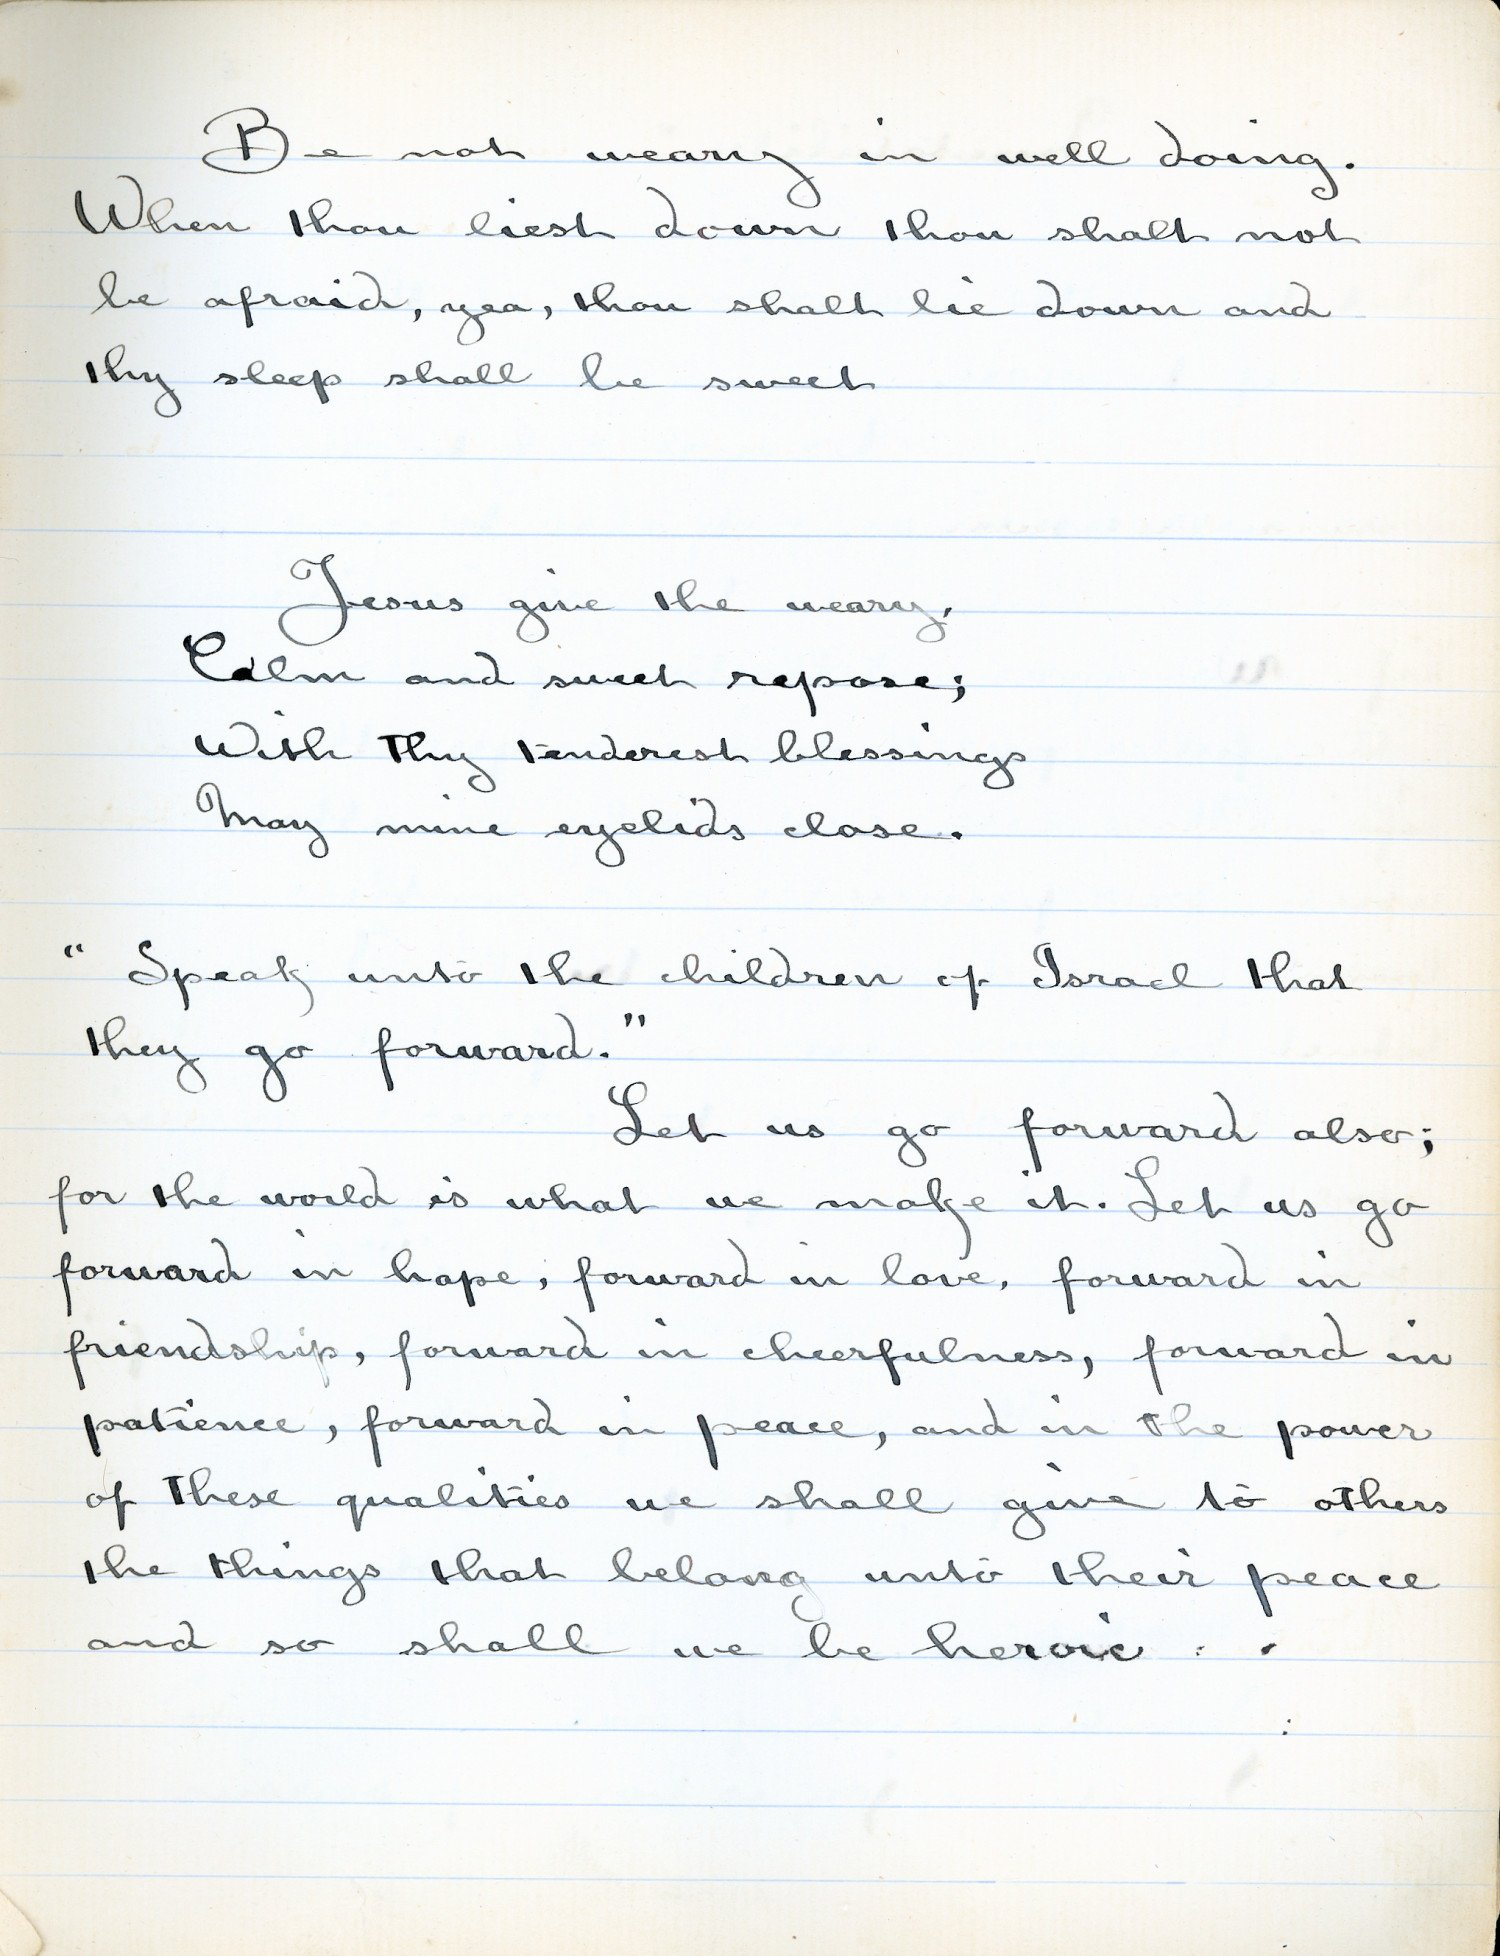 Be not weary in well doing.
When thou liest down thou shalt not
be afraid, yea, thou shalt lie down and
thy sleep shall be sweet
Jesus give the weary,
Calm and sweet repose;
With Thy tenderest blessings
May mine eyelids close.
"Speak unto the children of Israel that
they go forward."
Let us go forward also;
for the world is what we make it. Let us go
forward in hope, forward in love, forward in
friendship, forward in cheerfulness, forward in
patience, forward in peace, and in the power
of these qualities we shall give to others
the things that belong unto their peace
and so shall we be heroic . .